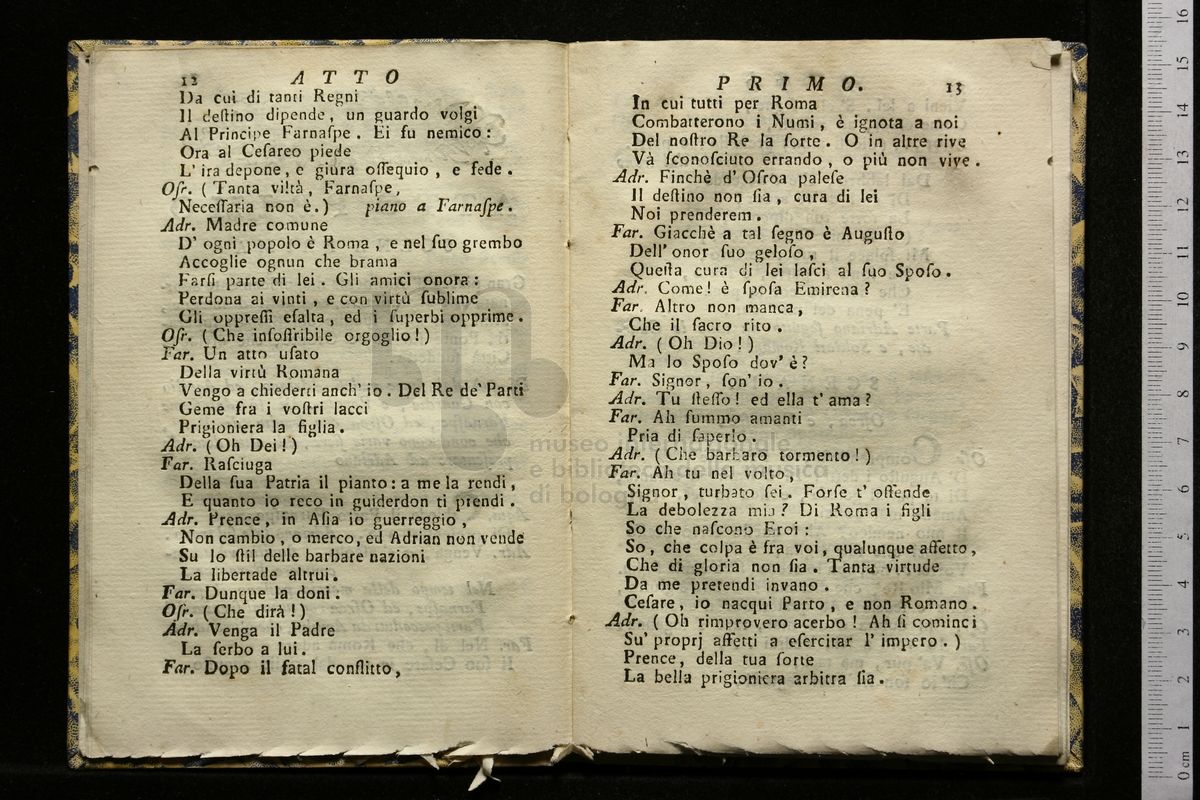 12 ATTO
Da cui di tanti Regni
Il deſtino dipende, un guardo volgi
Al Principe Farnaſpe. Ei fu nemico:
Ora al Ceſareo piede
L' ira depone, e giura oſſequio, e fede.
Oſr. (Tanta viltà, Farnaſpe,
Neceſſaria non è.) piano a Farnaſpe.
Adr. Madre comune
D' ogni popolo è Roma, e nel ſuo grembo
Accoglie ognun che brama
Farſi parte di lei. Gli amici onora:
Perdona ai vinti, e con virtù ſublime
Gli oppreſſi eſalta, ed i ſuperbi opprime.
Oſr. (Che inſoffribile orgoglio!)
Far. Un atto uſato
Della virtù Romana
Vengo a chiederti anch' io. Del Re de' Parti
Geme fra i voſtri lacci
Prigioniera la figlia.
Adr. (Oh Dei!)
Far. Raſciuga
Della ſua Patria il pianto: a me la rendi,
E quanto io reco in guiderdon ti prendi.
Adr. Prence, in Aſia io guerreggio,
Non cambio, o merco, ed Adrian non vende
Su lo ſtil delle barbare nazioni
La libertade altrui.
Far. Dunque la doni.
Oſr. (Che dirà!)
Adr. Venga il Padre
La ſerbo a lui.
Far. Dopo il fatal conflitto,
PRIMO. 13
In cui tutti per Roma
Combatterono i Numi, è ignota a noi
Del noſtro Re la ſorte. O in altre rive
Và ſconoſciuto errando, o più non vive.
Adr. Finchè d' Oſroa paleſe
Il deſtino non ſia, cura di lei
Noi prenderem.
Far. Giacchè a tal ſegno è Auguſto
Dell' onor ſuo geloſo,
Queſta cura di lei laſci al ſuo Spoſo.
Adr. Come! è ſpoſa Emirena?
Far. Altro non manca,
Che il ſacro rito.
Adr. (Oh Dio!)
Ma lo Spoſo dov' è?
Far. Signor, ſon' io.
Adr. Tu ſteſſo! ed ella t' ama?
Far. Ah fummo amanti
Pria di ſaperlo.
Adr. (Che barbaro tormento!)
Far. Ah tu nel volto,
Signor, turbato ſei. Forſe t' offende
La debolezza mia? Di Roma i figli
So che naſcono Eroi:
So, che colpa è fra voi, qualunque affetto,
Che di gloria non ſia. Tanta virtude
Da me pretendi invano.
Ceſare, io nacqui Parto, e non Romano.
Adr. (Oh rimprovero acerbo! Ah ſi cominci
Su' proprj affetti a eſercitar l' impero.)
Prence, della tua ſorte
La bella prigioniera arbitra ſia.
museo internazionale
e biblioteca della musica
di bologna
0 cm 1 2 3 4 5 6 7 8 9 10 11 12 13 14 15 16